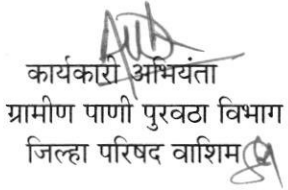 कार्यकारी अभियंता
ग्रामीण पाणी पुरवठा विभाग
जिल्हा परिषद वाशिम